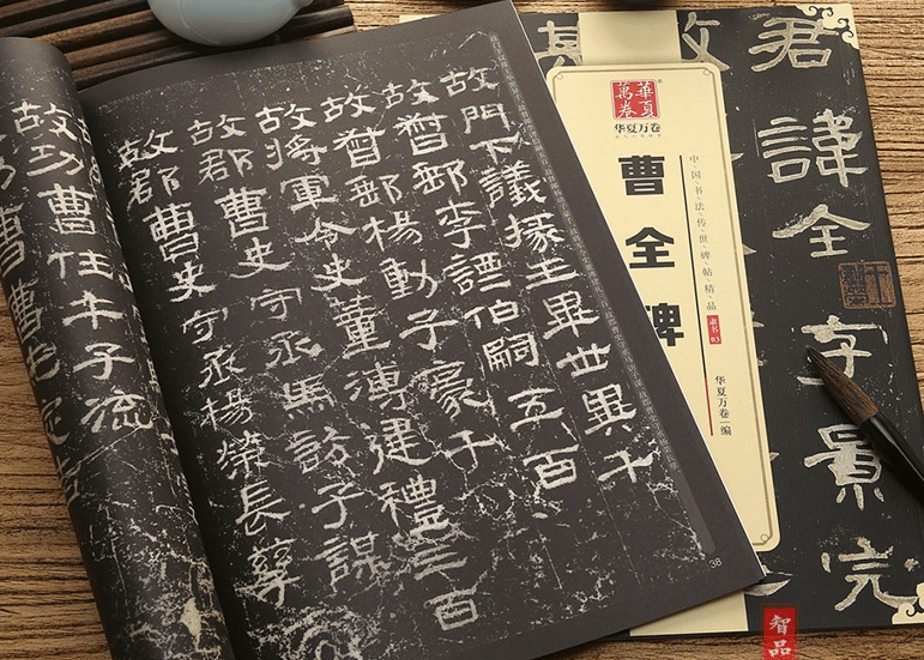 故門下議掾王畢世異千
故督郵李諲伯嗣五百
故督郵楊動子豪千
故將軍令史董溥建禮三百
故郡曹史守丞馬訪子謀
故郡曹史守丞楊榮長孳
38
故功曹任午子流
曹屯定吉
華夏萬卷
华夏万卷
曹全碑
中国书法传世碑帖精品
隶书03
华夏万卷 编
君諱全字景完
智品